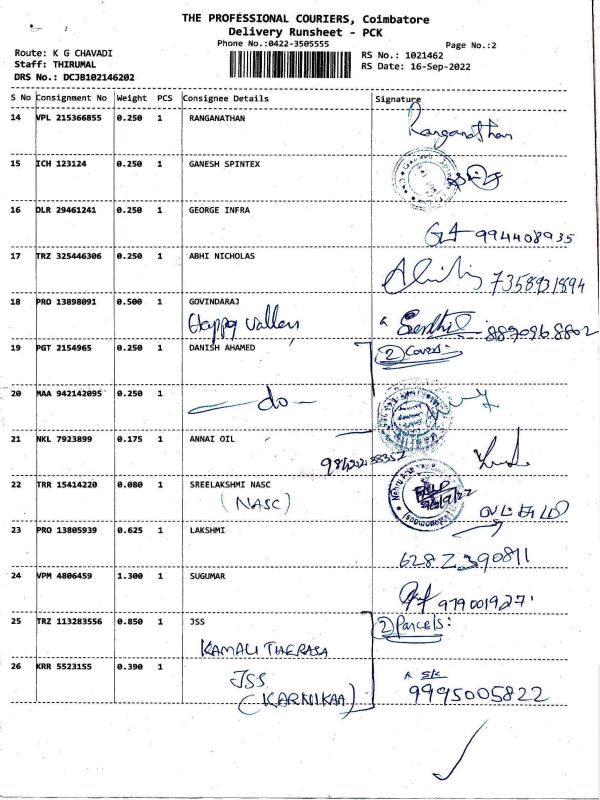 THE PROFESSIONAL COURIERS, Coimbatore
Delivery Runsheet - PCK
Phone No.:0422-3505555
Page No.:2
Route: K G CHAVADI
RS No.: 1021462
Staff: THIRUMAL
RS Date: 16-Sep-2022
DRS No.: DCJB102146202
S No Consignment No Weight PCS Consignee Details Signature
14 VPL 215366855 0.250 1 RANGANATHAN Ranganathan
15 ICH 123124 0.250 1 GANESH SPINTEX
16 DLR 29461241 0.250 1 GEORGE INFRA
994408935
17 TRZ 325446306 0.250 1 ABHI NICHOLAS
7358931894
18 PRO 13898091 0.500 1 GOVINDARAJ
Happy Valley Senthil 8870968802
19 PGT 2154965 0.250 1 DANISH AHAMED 2 Covers:
20 MAA 942142095 0.250 1
— do —
21 NKL 7923899 0.175 1 ANNAI OIL
22 TRR 15414220 0.080 1 SREELAKSHMI NASC
(NASC)
23 PRO 13805939 0.625 1 LAKSHMI
6282390811
24 VPM 4806459 1.300 1 SUGUMAR
979001927
25 TRZ 113283556 0.850 1 JSS 2 Parcels:
KAMALI THERASA
26 KRR 5523155 0.390 1
JSS
(KARNIKAA) 9995005822